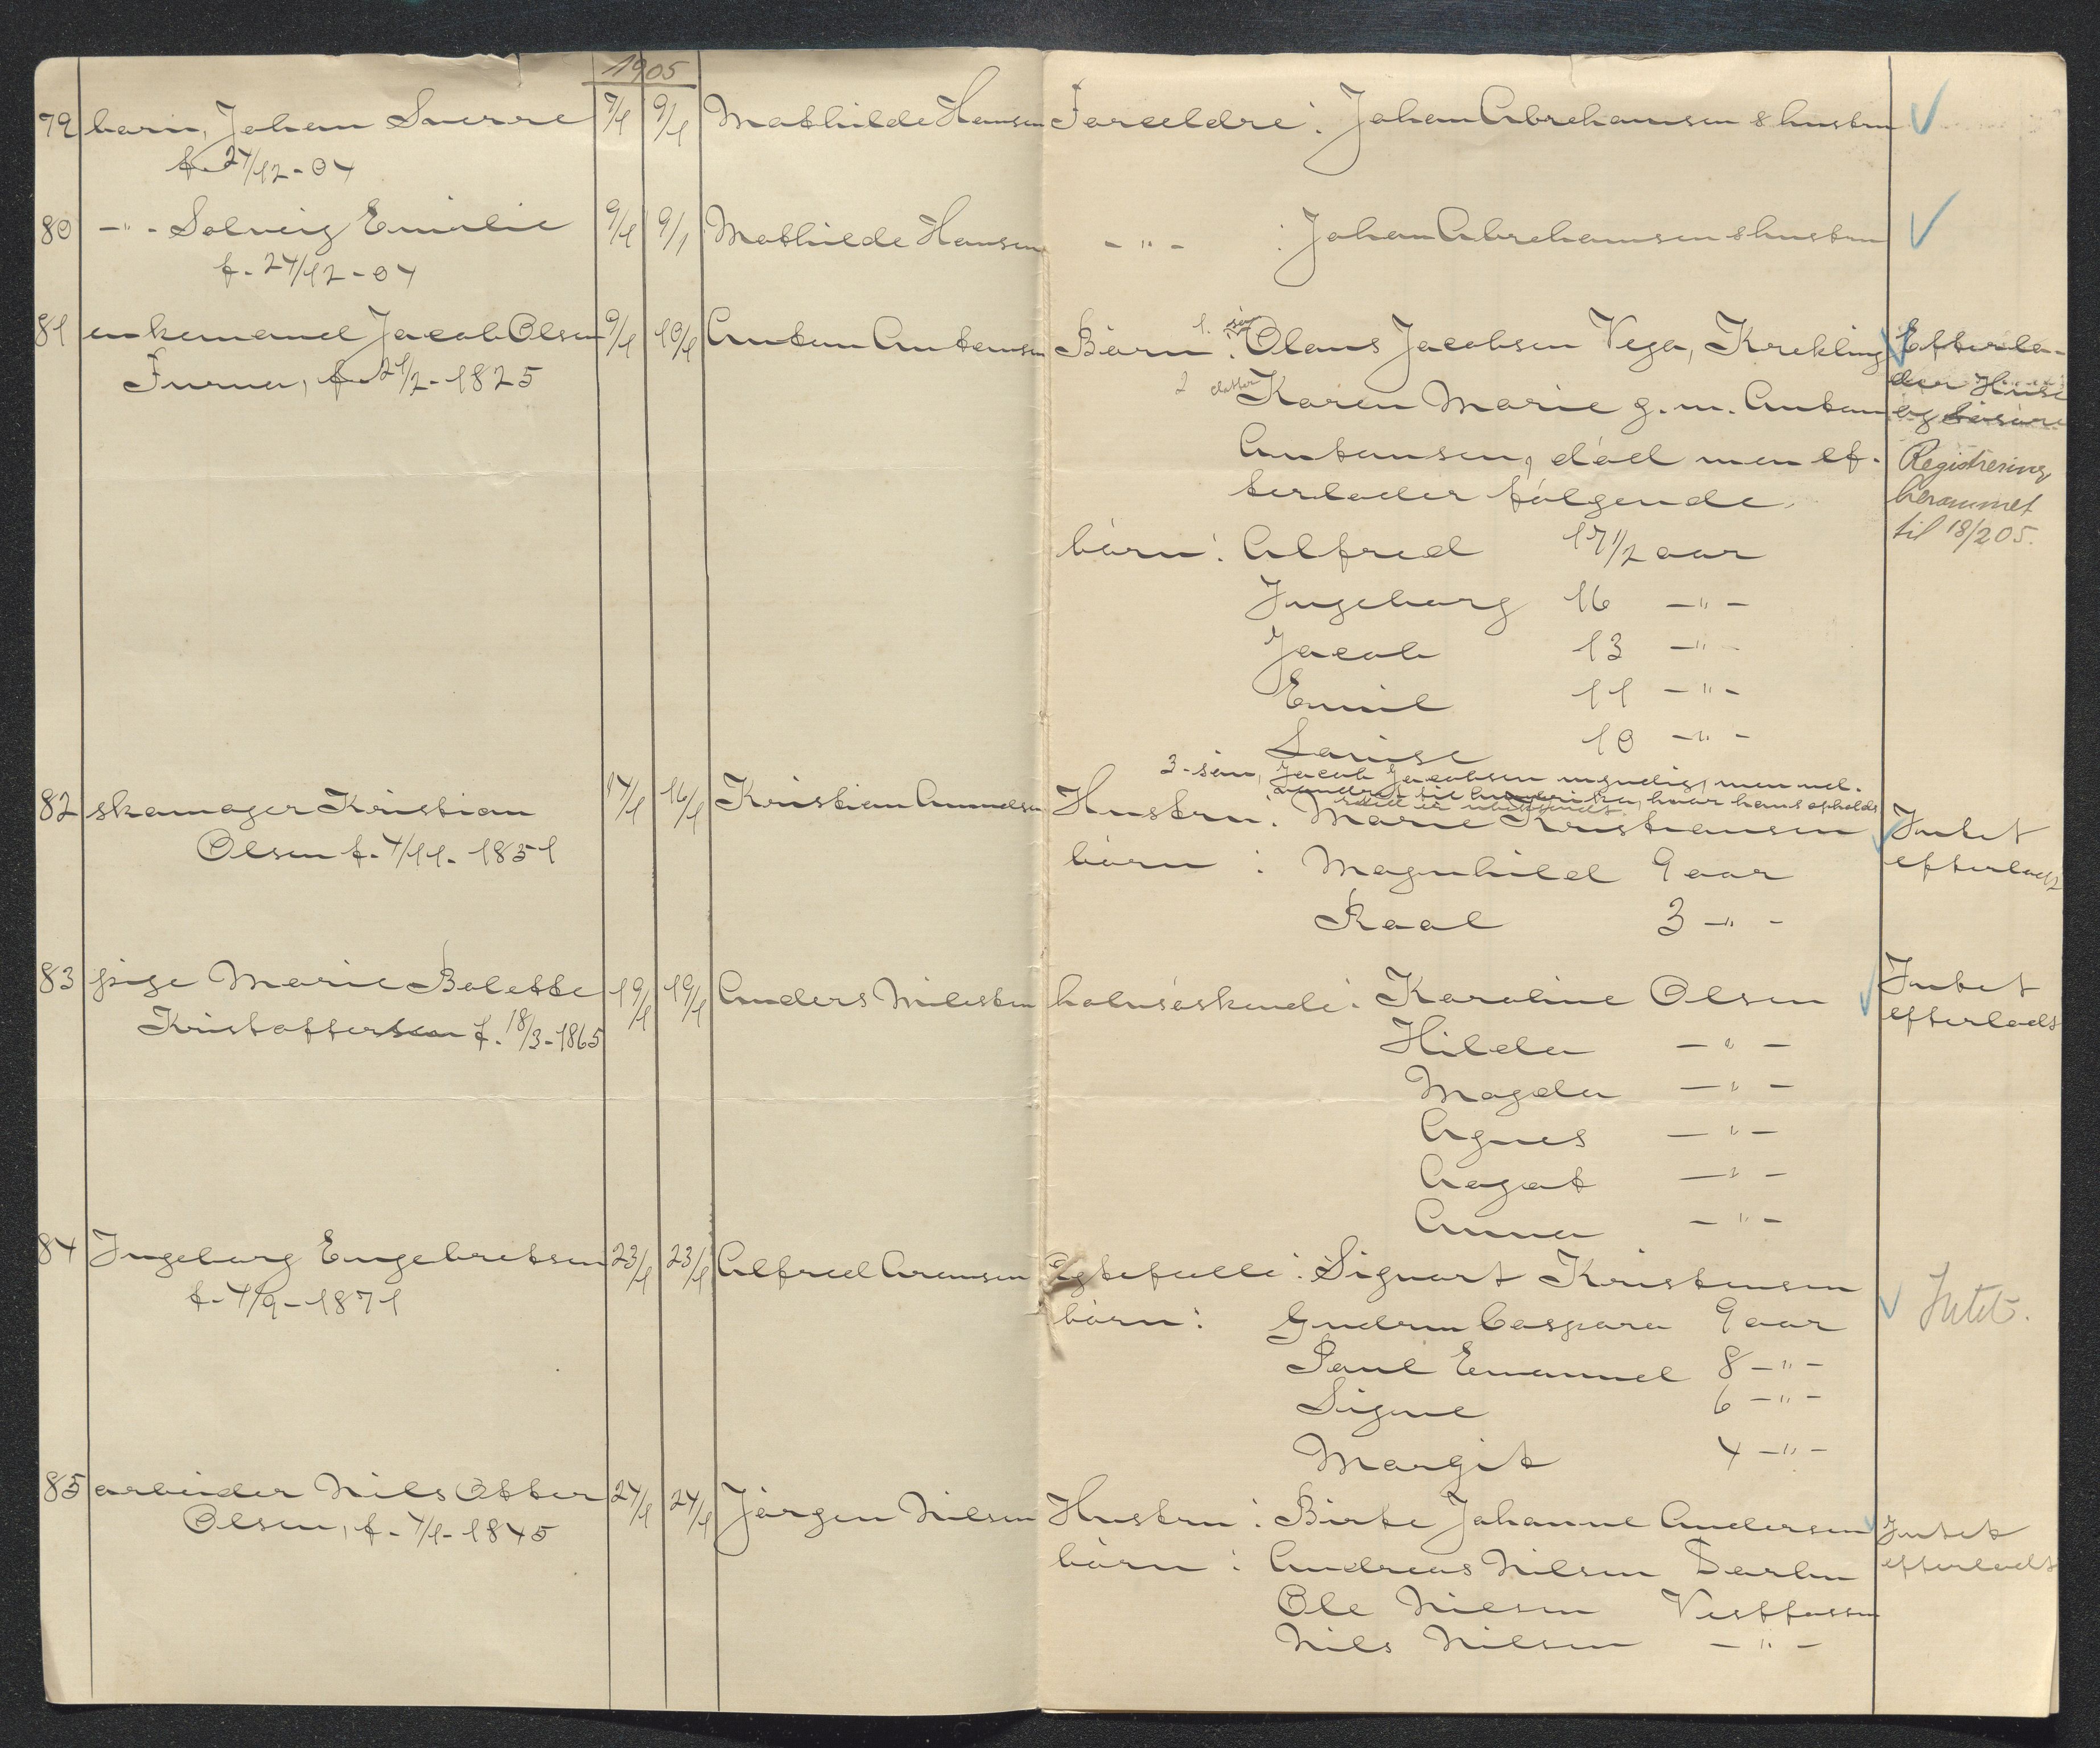 1905
79 barn, Johan Sverre 7/1 9/1 Mathilde Hansen Foræeldre : Johan Abrahamsen & hustru
f. 24/12-04
80 -"- Solveig Emilie 9/1 9/1 Mathilde Hansen -"- : Johan Abrahamsen & hustru
f. 24/12-04
81 enkemand Jacob Olsen 9/1 10/1 Anton Antonsen Børn : 1. søn Olaus Jacobsen Vega, Krekling Efterla-
Furua, f. 21/2-1825 2 datter Karen Marie g. m. Anton der Huse
og løsøre
Antonsen, død men ef-
terlader følgende
Registrering
berammet
til 18/2 05.
børn : Alfred 17 1/2 aar
Ingeborg 16 -"-
Jacob 13 -"-
Emil 11 -"-
Lovise 10 -"-
3 - søn, Jacob Jacobsen myndig, men ud-
vandret til Amerika, hvor hans opholds
sted er ubekjendt
82 skomager Kristian 14/1 16/1 Kristian Amundsen Hustru : Marie Kristiansen Intet
Olsen f. 4/11-1851 børn : Magnhild 9 aar efterladt
Raal 3 -"-
83 pige Marie Bolette 19/1 19/1 Anders Milesten halvsøskende : Karoline Olsen Intet
Kristoffersen f. 18/3-1865 efterladt
Hilda -"-
Magda -"-
Agnes -"-
Aagot -"-
Anna -"-
84 Ingeborg Engebretsen 23/1 23/1 Alfred Aronsen Egtefælle : Sigvart Kristensen
f. 4/9-1871 børn : Gudrun Caspara 9 aar Intet.
Paul Emanuel 8 -"-
Signe 6 -"-
Margit 4 -"-
85 arbeider Nils Otter 24/1 24/1 Jørgen Nilsen Hustru : Birte Johanne Andersen Intet
Olsen, f. 4/1-1845 børn : Andreas Nilsen Darbu efterladt
Ole Nilsen Vestfossen
Nils Nilsen -"-